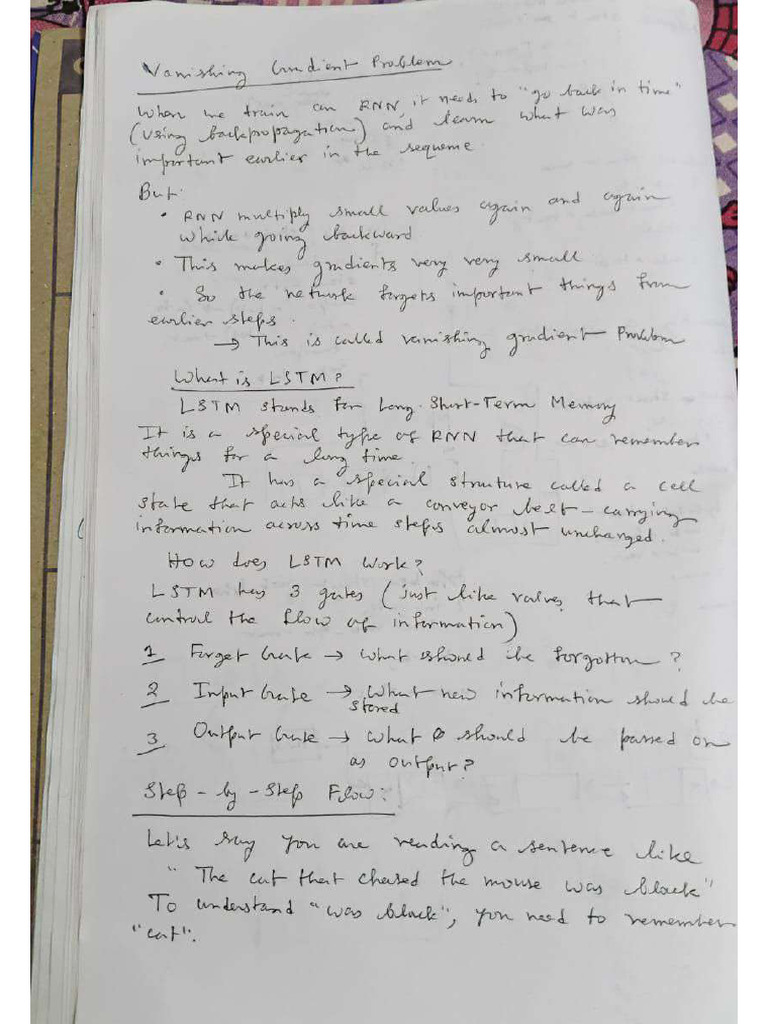 Vanishing Gradient Problem
When we train an RNN, it needs to "go back in time"
(using backpropagation) and learn what was
important earlier in the sequence
But:
• RNN multiply small values again and again
while going backward
• This makes gradients very very small
• So the network forgets important things from
earlier steps.
→ This is called vanishing gradient Problem
What is LSTM?
LSTM stands for Long Short-Term Memory
It is a special type of RNN that can remember
things for a long time.
It has a special structure called a cell
state that acts like a conveyor belt - carrying
information across time steps almost unchanged.
How does LSTM Work?
LSTM has 3 gates (just like valves that
control the flow of information)
1 Forget Gate → what should be forgotten?
2 Input Gate → What new information should be
stored
3 Output Gate → What should be passed on
as output?
Step-by-Step Flow:
Let's say you are reading a sentence like
"The cat that chased the mouse was black"
To understand "was black", you need to remember
"cat".